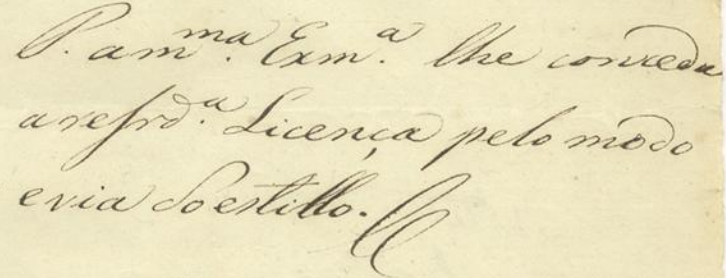 P. a m.ma Exm.a lhe conceda
a refrd.a Licença pelo modo
e via do estillo.